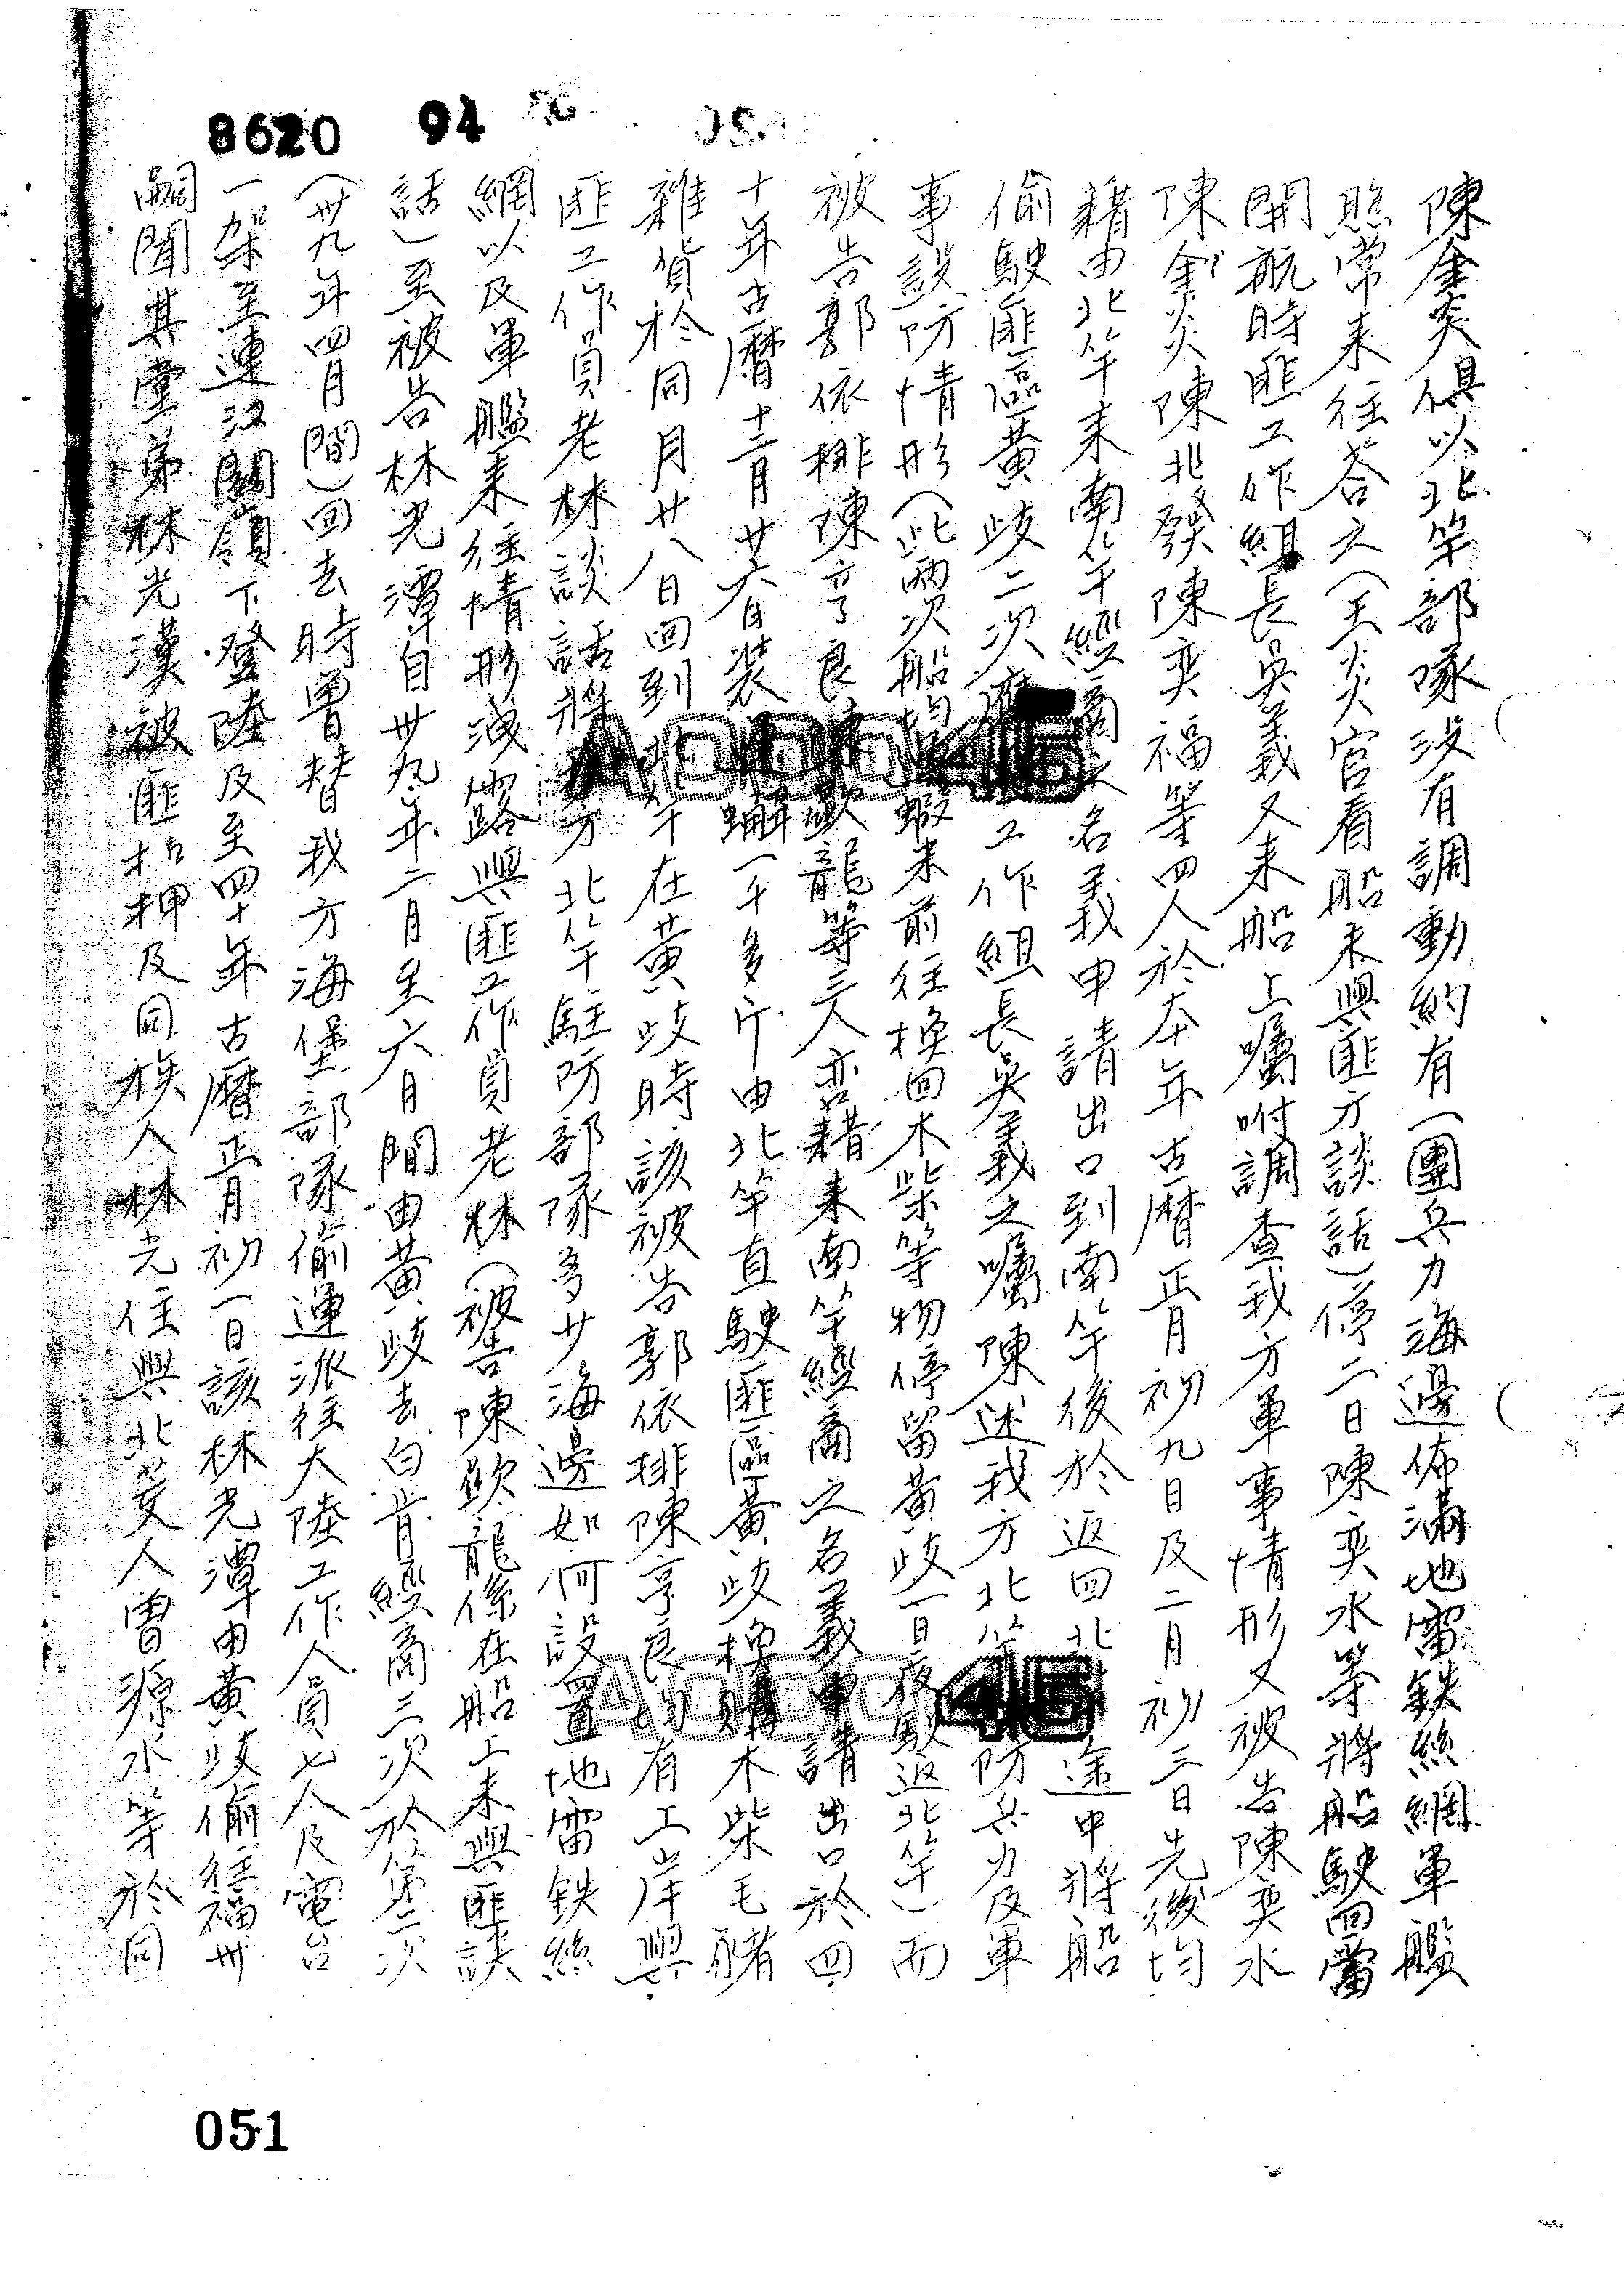 8620 94
陳金炎俱以北竿部隊沒有調動約有一團兵力海邊佈滿地雷鉄絲網軍艦
照常来往荅之(王炎炎官看船未與匪方談話)停二日陳奕水等將船駛回當
開航時匪工作組長吳義又来船上囑咐調查我方軍事情形又被告陳奕水
陳金炎陳北發陳奕福等四人於本年古曆正月初九日及二月初三日先後均
藉由北竿来南竿經商之名義申請出口到南竿後於返回北途中將船
偷駛匪區黃岐二次應工作組長吳義之囑陳述我方北竿防兵力及軍
事設防情形(此兩次船均蝦米前往換回木柴等物停留黃岐一日夜駛返北竿)而
被告郭依排陳亨良陳歛龍等三人亦藉来南竿經商之名義申請出口於四
十年古曆十二月廿六日装蝦一千多斤由北竿直駛匪區黃岐換購木柴毛豬
雜貨於同月廿八日回到北竿在黃岐時該被告郭依排陳亨良均有上岸與
匪工作員老林談話將我方北竿駐防部隊多少海邊如何設置地雷鉄絲
網以及軍艦来往情形洩露與匪工作員老林(被告陳歛龍係在船上未與匪談
話)至被告林光潭自卅九年二月至六月間由黃岐去白肯經商三次於第二次
(卅九年四月間)回去時曾替我方海堡部隊偷運派往大陸工作人員七人及電台
一架至連江關嶺下登陸及至四十年古曆正月初一日該林光潭由黃岐偷往福州
嗣聞其堂弟林光漢被匪拈押及同族人林光住與北茭人曾源水等於同
A00045
A00045
051